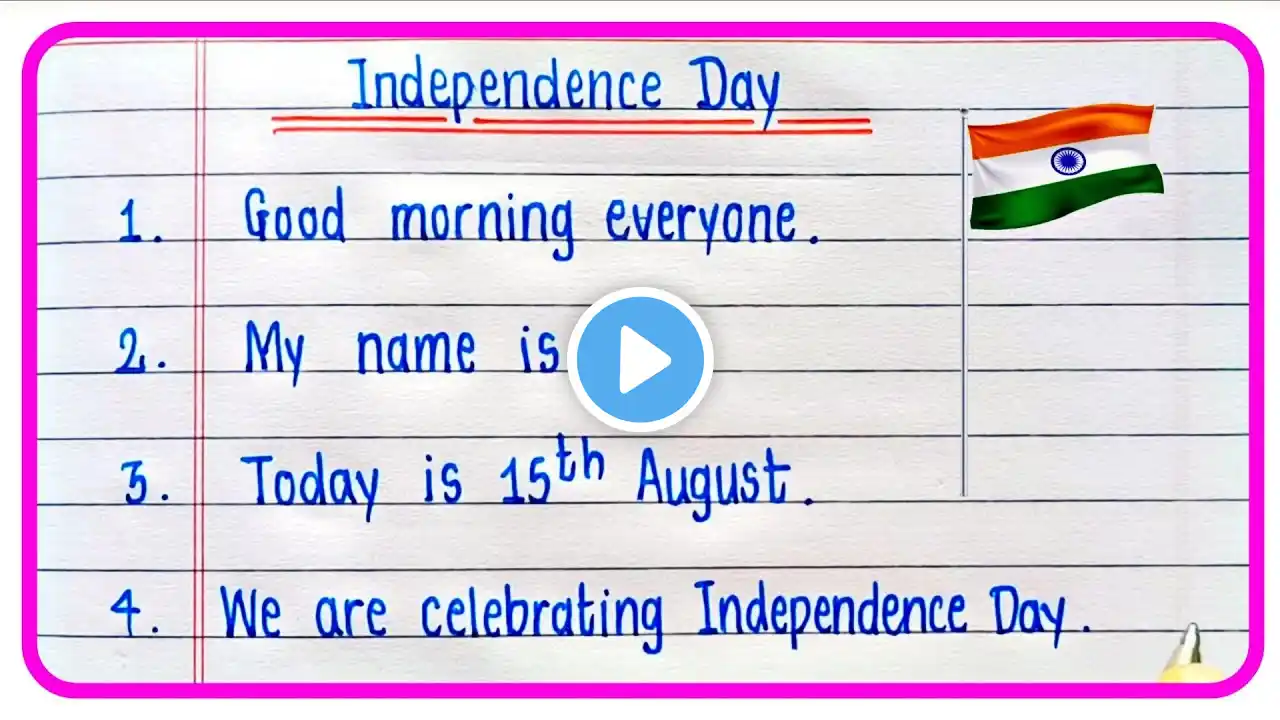 Independence Day
1. Good morning everyone.
2. My name is
3. Today is 15th August.
4. We are celebrating Independence Day.